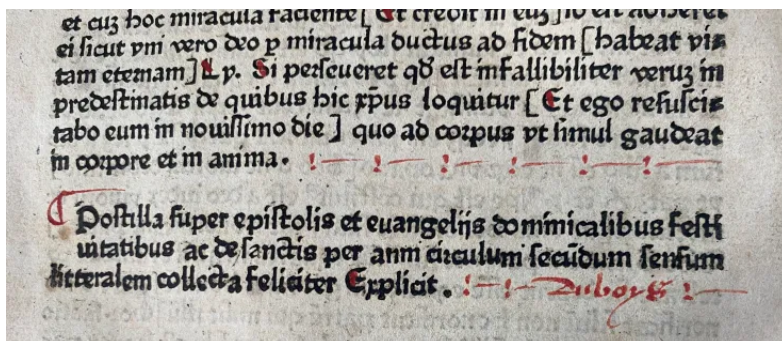 et cuȝ hoc miracula faciente [ Et credit in euȝ ] id est adheret
ei sicut vni vero deo ꝑ miracula ductus ad fidem [ habeat vi⸗
tam eternam ] I. p. Si perſeueret qđ eſt infallibiliter veruȝ in
predeſtinatis de quibus hic xp̄us loquitur [ Et ego reſuſci⸗
tabo eum in nouiſſimo die ] quo ad corpus vt ſimul gaudeat
in corpore et in anima.
Poſtilla ſuper epiſtolis et euangelijs dominicalibus feſti
uitatibus ac de ſanctis per anni circulum ſecūdum ſenſum
litteralem collecta feliciter Explicit. Duboys